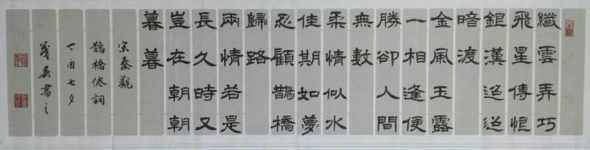 纖雲弄巧
飛星傳恨
銀漢迢迢
暗渡
金風玉露
一相逢便
勝卻人間
無數
柔情似水
佳期如夢
忍顧鵲橋
歸路
兩情若是
長久時又
豈在朝朝
暮暮
宋秦觀
鵲橋仙詞
丁酉七夕